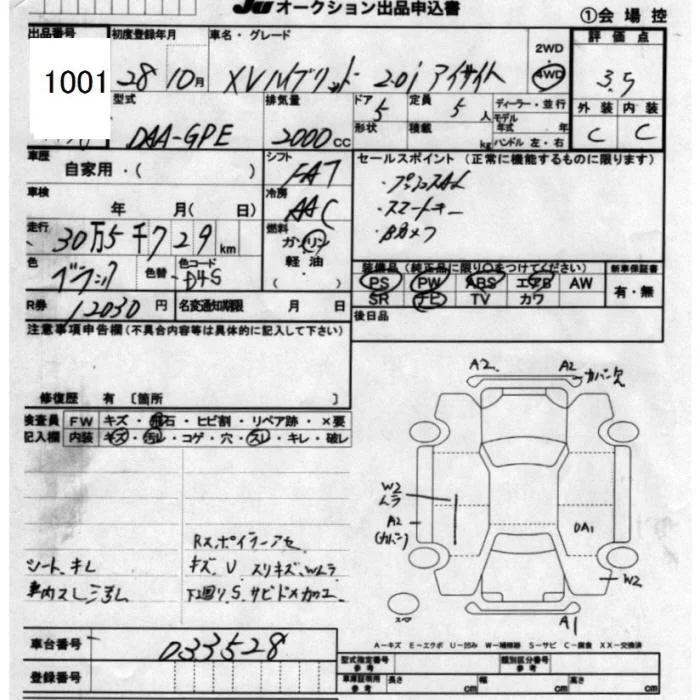 Ju オークション出品申込書
①会場控
出品番号 初度登録年月 車名・グレード 2WD 4WD 評価点
1001 28 10月 XVハイブリット 2.0i アイサイト 3.5
型式 排気量 ドア 5 定員 5 人 ディーラー・並行 外装 内装
DAA-GPE 2000 CC 形状 積載 kg モデル年式 年 ハンドル 左・右 C C
車歴 シフト セールスポイント (正常に機能するものに限ります)
自家用・( ) FAT ・プッシュスタート
車検 冷房 ・スマートキー
年 月( 日) AAC
走行 燃料
30万5千729km ガソリン
色 色替 色コード 軽・油 装備品 (純正品に限り○をつけてください) 新車保証書
ブラック D4S ( ) PS PW ABS エアB AW 有・無
R券 12030円 名変通知期限 月 日 SR ナビ TV カワ
注意事項申告欄(不具合内容等は具体的に記入して下さい) 後日品
修復歴 有 〔箇所 〕
検査員 FW キズ・飛石・ヒビ割・リペア跡・×要
記入欄 内装 キズ・汚レ・コゲ・穴・スレ・キレ・破レ
A2 A2 カバー欠
W2 ムラ
A2 (カバー) DA1
Rスポイラーアセ
シート、キレ キズ、U スリキズ、Wムラ
W2
下回り、S、サビドメカロエ
スペア A1
A－キズ E－エクボ U－凹み W－補修跡 S－サビ C－腐食 XX－交換済
車台番号 033528
型式指定番号 参考 類別区分番号 参考
登録番号 車庫証明用 参考 長さ cm 幅 cm 高さ cm